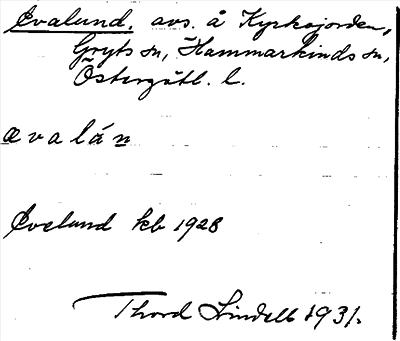 Evalund. avs. å Kyrkojorden,
Gryts sn, Hammarkinds sn,
Östergötl. l.
evalán
Evelund kb 1928
Thord Lindell 1931.